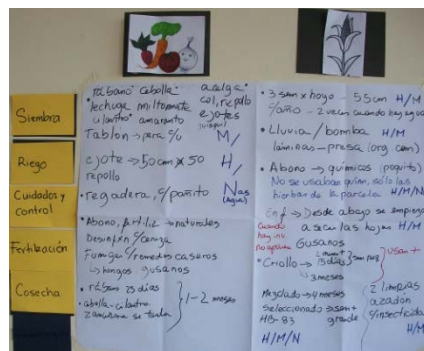 Siembra
Riego
Cuidados y
control
Fertilización
Cosecha
rábano cebolla acelga
lechuga miltomate col, repollo
culantro amaranto ejotes
Tablon → para c/u M/
ejote → 50 cm x 50 H/
repollo
• regadera, c/pañito Nas
(Agua)
• Abono, fertiliz → naturales
Desinfxn c/ceniza
Fumigar c/remedios caseros
↳ hongos gusanos
• rábano 25 días
cebolla - cilantro
zanahoria se tarda
1-2 meses
• 3 sem x hoyo - 55 cm H/M
c/año - 2 veces cuando hay agua
• Lluvia / bomba H/M
láminas - presa (org. com)
• Abono → químicos (poquito)
No se usaban quím, sólo las
hierbas de la parcela H/M/N
Enf → Desde abajo se empieza
a secar las hojas H/M
Cuando
hay inv.
no aprov.
Gusanos
• Criollo → 15 días
→ 3 meses
usan +
Mezclado → 4 meses
Seleccionado →
HB-83 grande
H/M/N
2 limpias
azadón
c/insecticida
H/M